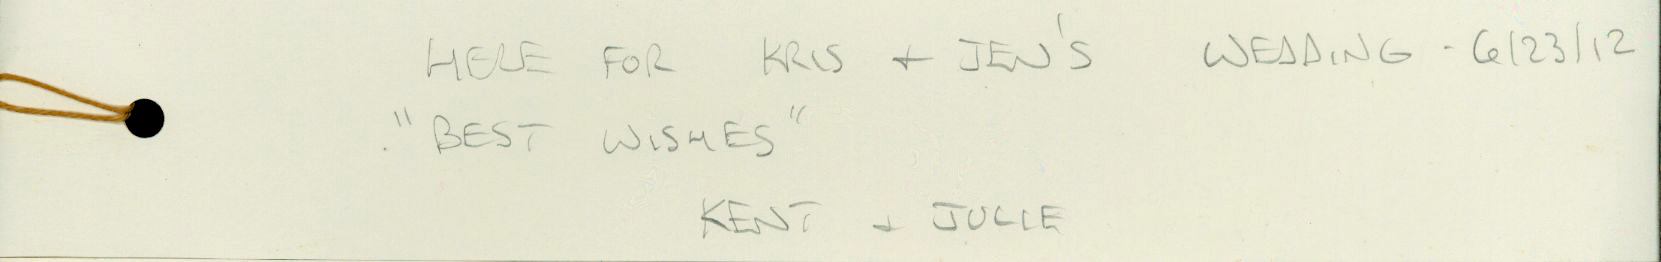 HERE FOR KRIS + JEN'S WEDDING - 6/23/12
"BEST WISHES"
KENT + JULIE